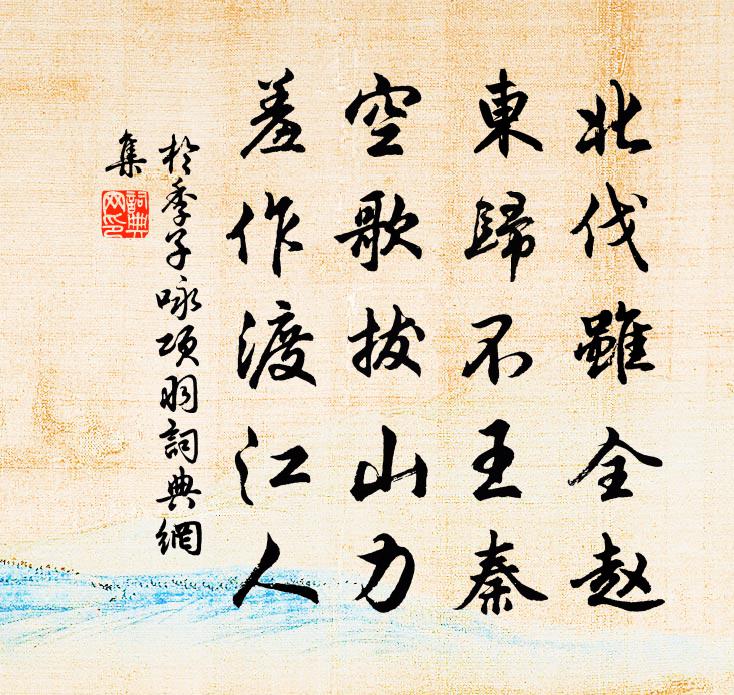 北伐雖全赵
東歸不王秦
空歌拔山力
羞作渡江人
於季子咏项羽詞典網
集
詞典网印